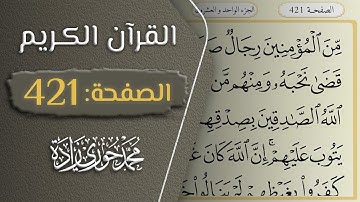 القرآن الكريم
الصفحة: 421
محمد حوري زاده
الصفحة 421
الجزء الواحد و العشرون
مِّنَ ٱلْمُؤْمِنِينَ رِجَالٌ
قَضَىٰ نَحْبَهُۥ وَمِنْهُم مَّن
ٱللَّهُ ٱلصَّٰدِقِينَ بِصِدْقِهِمْ
يَتُوبَ عَلَيْهِمْ ۚ إِنَّ ٱللَّهَ كَانَ
كَفَرُوا۟ بِغَيْظِهِمْ لَمْ يَنَالُوا۟